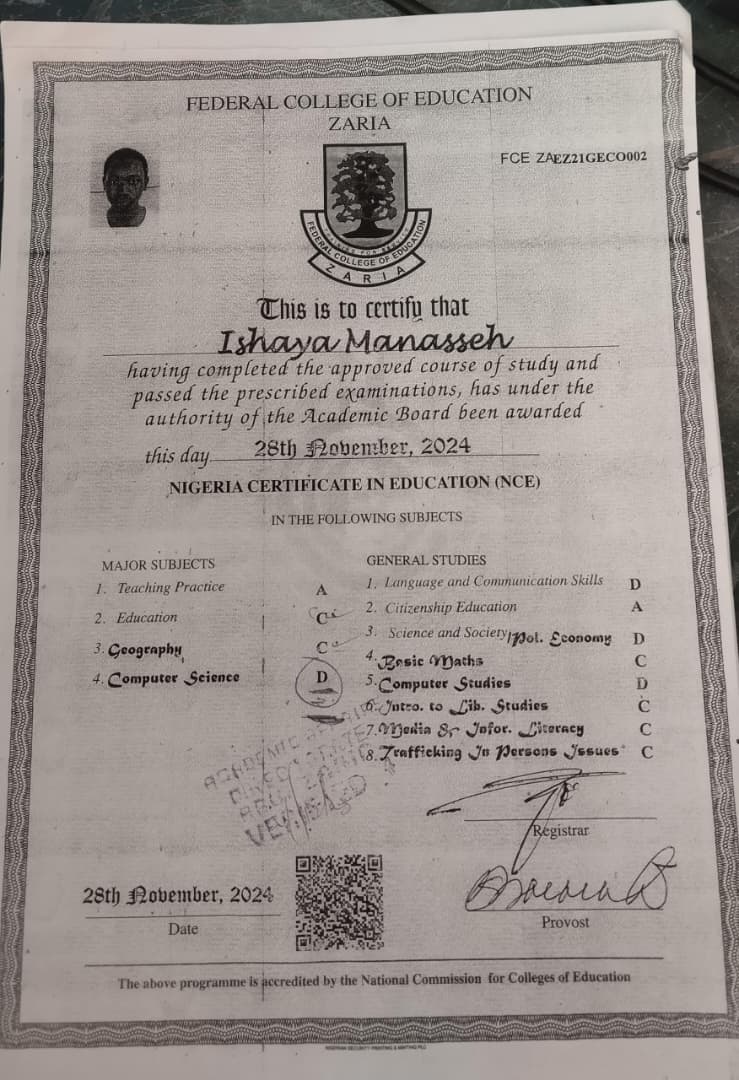 FEDERAL COLLEGE OF EDUCATION
ZARIA
FCE ZAEZ21GECO002
FEDERAL COLLEGE OF EDUCATION
ZARIA
This is to certify that
Ishaya Manasseh
having completed the approved course of study and
passed the prescribed examinations, has under the
authority of the Academic Board been awarded
this day 28th November, 2024
NIGERIA CERTIFICATE IN EDUCATION (NCE)
IN THE FOLLOWING SUBJECTS
MAJOR SUBJECTS
1. Teaching Practice A
2. Education C
3. Geography C
4. Computer Science D
GENERAL STUDIES
1. Language and Communication Skills D
2. Citizenship Education A
3. Science and Society/Pol. Economy D
4. Basic Maths C
5. Computer Studies D
6. Intro. to Lib. Studies C
7. Media & Infor. Literacy C
8. Trafficking In Persons Issues C
ACADEMIC
Registrar
28th November, 2024
Date
Provost
The above programme is accredited by the National Commission for Colleges of Education